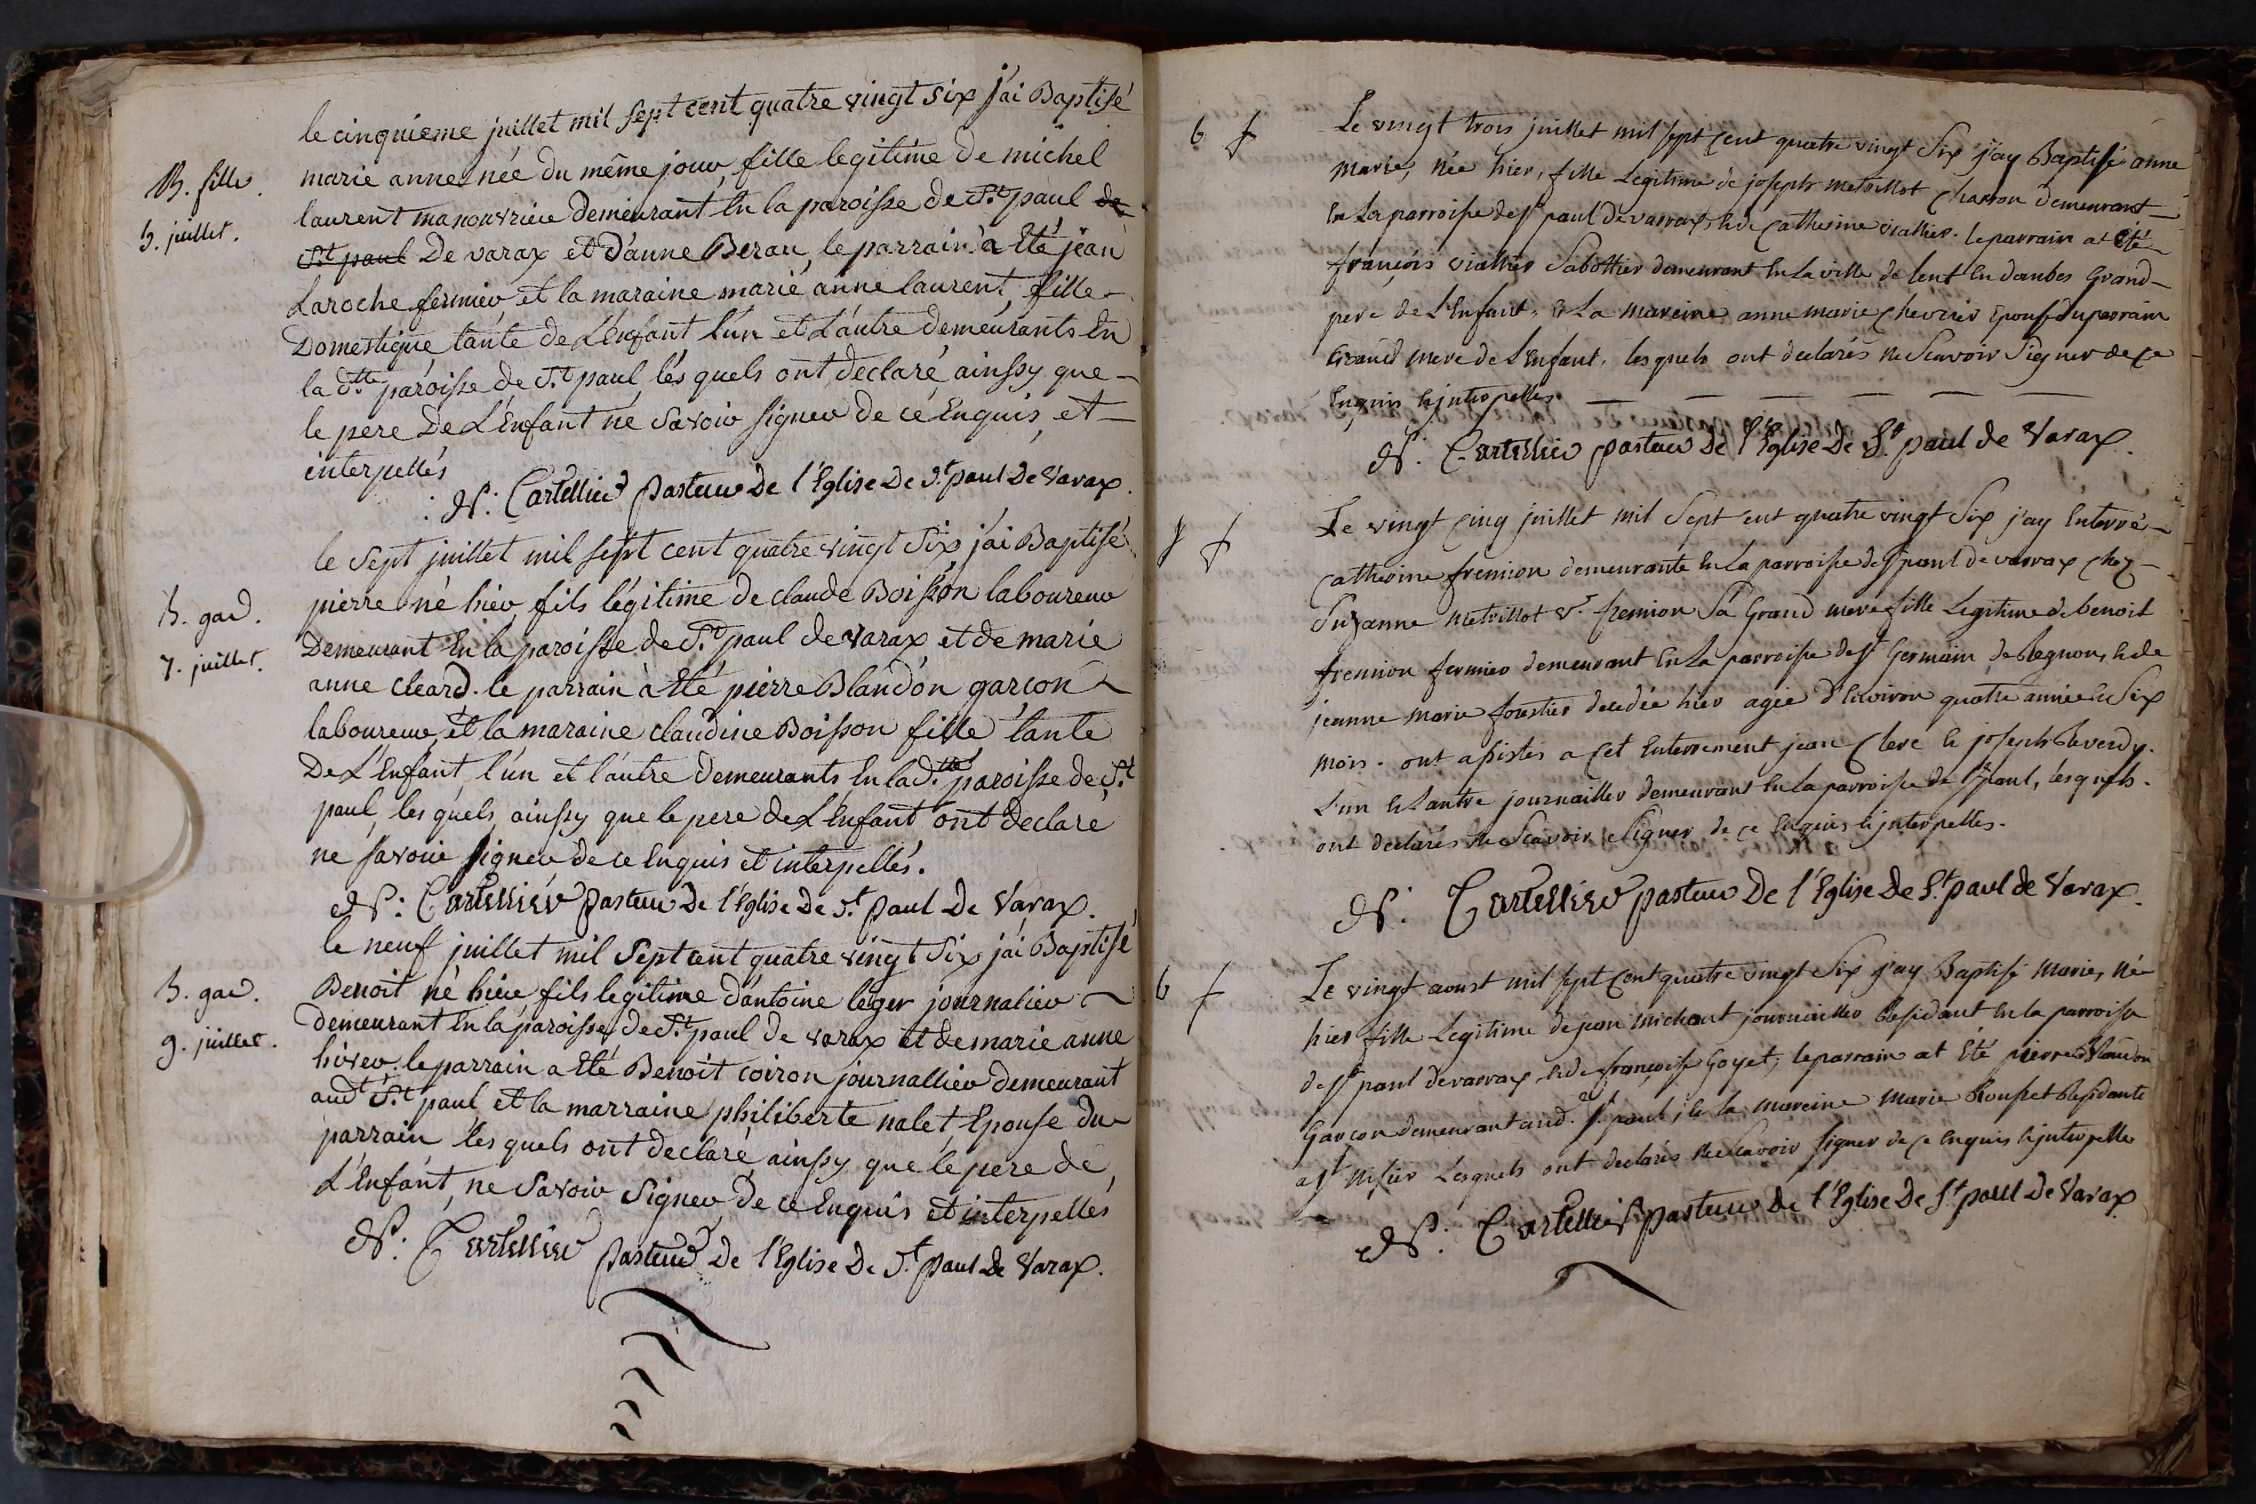 B. fille.
5. juillet.
le cinquieme juillet mil sept cent quatre vingt six j'ai Baptisé
marie anne née du même jour, fille legitime de michel
laurent manouvrieu demeurant En la paroisse de St. paul de
St. paul De varax et d'anne Berau, le parrain a Eté jean
Laroche fermier, et la maraine marie anne laurent, fille
Domestique tante de L'Enfant l'un et L'autre demeurants En
la dtte. paroisse de St. paul, les quels ont declaré ainssy que
le pere De L'Enfant ne Savoir signer de ce Enquis, et
interpellés
N: Cartellier Pasteur de l'Eglise De St. paul De Varax.
B. gar.
7. juillet.
le Sept juillet mil sept cent quatre vingt Six j'ai Baptisé
pierre né hier fils légitime de claude Boisson laboureur
Demeurant En la paroisse de St. paul de Varax et de marie
anne cleard. le parrain a Eté pierre Blandon garçon
laboureur, et la maraine claudine Boisson fille tante
De L'Enfant, l'un et l'autre demeurants En la dtte. paroisse de St.
paul, les quels ainssy que le pere de L'Enfant ont declaré
ne savoir signer de ce Enquis et interpellés.
N: Cartellier pasteur De l'Eglise De St. Paul De Varax.
B. gar.
9. juillet.
le neuf juillet mil Sept cent quatre vingt Six jai Baptisé
Benoit né hier fils legitime d'antoine léger journalier
demeurant En la paroisse de St. paul de varax et de marie anne
le parrain a Eté Benoit coiron journallier demeurant
audt St. paul et la marraine philiberte nalet Epouse du
parrain les quels ont declaré ainssy que le pere de
L'Enfant, ne Savoir signer de ce Enquis et interpellés
N: Cartellier Pasteur de l'Eglise De St. Paul De Varax.
b f
Le vingt trois juillet mil sept Cent quatre vingt Six j'ay Baptisé anne
Marie, née hier, fille Legitime de joseph metrillot Charron demeurant
En La parroisse de St paul de varrax, & de Catherine viallier. le parrain at Eté
françois viallier Sabottier demeurant En La ville de lent En dombes Grand
pere de L'Enfant. & La mareine anne marie Chevrier Epouse du parrain
Grand mere de L'Enfant. lesquels ont declarés ne Scavoir Signer de ce
Enquis & jnterpellés.
N: Cartellier pasteur de l'Eglise De St. paul de Varax.
f
Le vingt Cinq juillet mil Sept cent quatre vingt Six j'ay Enterré
Catherine frennion demeurante En La parroisse de St paul de varrax chez
Suzanne metrillot Ve. frennion Sa Grand mere, fille Legitime de benoit
frennion fermier demeurant En La parroisse de St Germain & de
jeanne marie fourtier decedée hier agée d'Environ quatre année & Six
mois. ont assistés a Cet Enterrement jean Clerc & joseph
L'un & L'autre journailler demeurant En La parroisse de St paul, lesquels
ont declarés ne Scavoir Signer de ce Enquis & jnterpellés.
N: Cartellier pasteur De l'Eglise De St. paul de Varax.
b f
Le vingt aoust mil sept Cent quatre vingt Six j'ay Baptisé Marie, né
hier fille Legitime de jean michaut journailler Residant En La parroisse
de St paul de varrax & de françoise Goyet; le parrain at Eté pierre Blandon
Garçon demeurant aud. St paul, & la mareine Marie Rousset Residante
a St nisier Lesquels ont declarés ne Scavoir signer de ce Enquis & jnterpellé
N: Cartellier Pasteur de l'Eglise De St paul De Varax